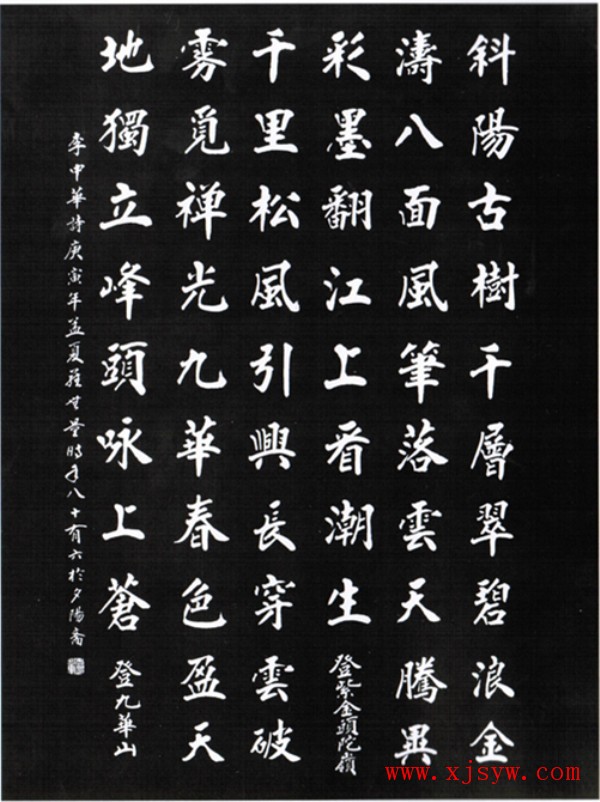 斜陽古樹千層翠碧浪金
濤八面風筆落雲天騰異
彩墨翻江上看潮生
登紫金頭陀嶺
千里松風引興長穿雲破
霧覓禅光九華春色盈天
地獨立峰頭咏上蒼
登九華山
李中華詩庚寅年孟夏時年八十有六於夕陽斋
www.xjsyw.com